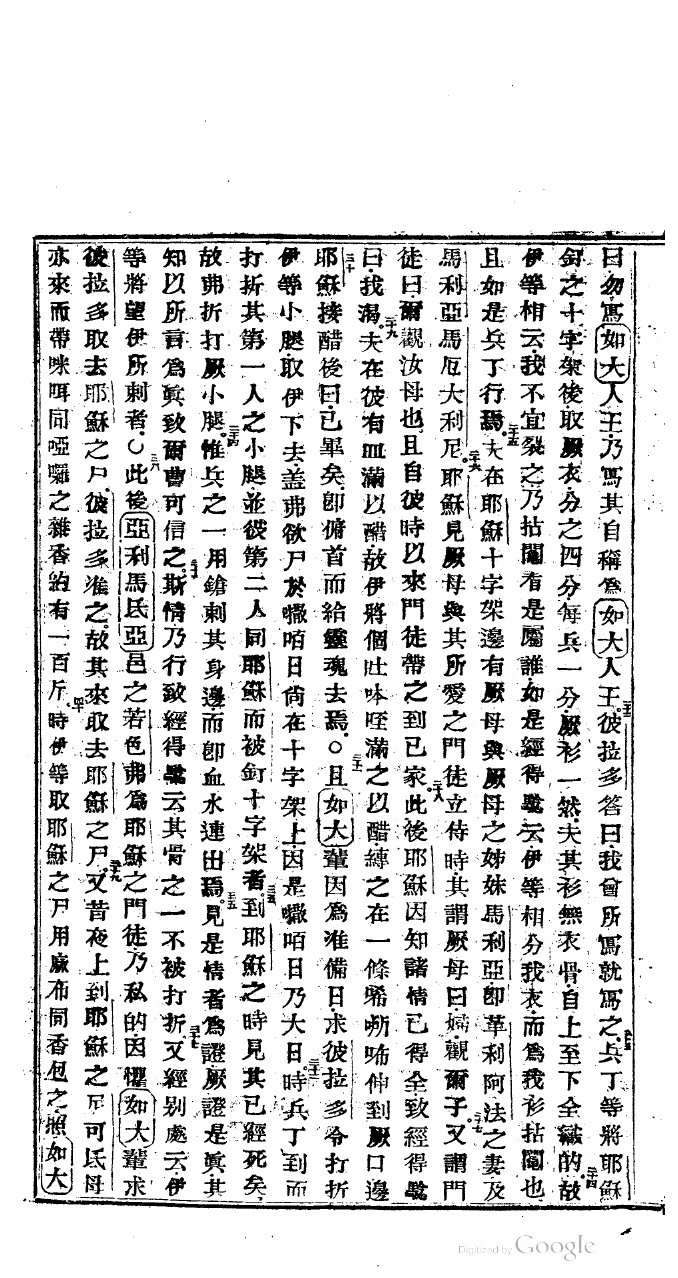 曰勿寫如大人王乃寫其自稱爲如大人王彼拉多答曰我曾所寫就寫之兵丁等將耶穌
釘之十字架後取厥衣分之四分每兵一分厥衫一然夫其衫無衣骨自上至下全織的故
伊等相云我不宜裂之乃拈鬮看是屬誰如是經得驗云伊等相分我衣而爲我衫拈鬮也
且如是兵丁行焉夫在耶穌十字架邊有厥母與厥母之姊妹馬利亞卽革利阿法之妻及
馬利亞馬厄大利尼耶穌見厥母與其所愛之門徒立侍時其謂厥母曰婦觀爾子又謂門
徒曰爾觀汝母也且自彼時以來門徒帶之到已家此後耶穌因知諸情已得全致經得驗
曰我渴夫在彼有皿滿以醋故伊將個吐㖠㗌滿之以醋縛之在一條唏㗭咘伸到厥口邊
耶穌接醋後曰已畢矣卽俯首而給靈魂去焉○且如大輩因爲准備日求彼拉多令打折
伊等小腿取伊下去蓋弗欲尸於𡃤咟日尙在十字架上因是𡃤咟日乃大日時兵丁到而
打折其第一人之小腿並彼第二人同耶穌而被釘十字架者到耶穌之時見其已經死矣
故弗折打厥小腿惟兵之一用鎗刺其身邊而卽血水連出焉見是情者爲證厥證是眞其
知以所言爲眞致爾曹可信之斯情乃行致經得驗云其骨之一不被打折又經別處云伊
等將望伊所刺者○此後亞利馬氐亞邑之若色弗爲耶穌之門徒乃私的因懼如大輩求
彼拉多取去耶穌之尸彼拉多准之故其來取去耶穌之尸又昔夜上到耶穌之尼可氐母
亦來而帶咪咡同啞囉之雜香約有一百斤時伊等取耶穌之尸用麻布同香包之照如大
Digitized by Google